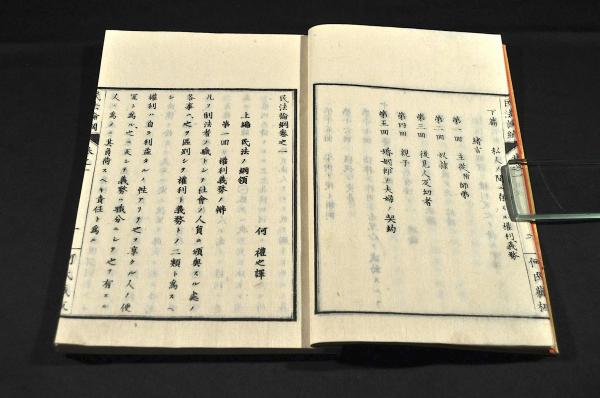 下篇 私人ノ間ニ係ル權利義務
緒言
第一回 主從即師弟
第二回 奴隷
第三回 後見人及幼者
第四回 親子
第五回 婚姻即夫婦ノ契約
民法論綱
民法論綱卷之一
何 禮之譯
上編 民法ノ綱領
第一回 權利義務ノ辨
凡ソ制法者ノ職トシテ社會ノ人員ニ頒與スル處ノ
各事ハ之ヲ區別シテ權利ト義務トノ二類ト為スヘシ
權利ハ自ラ利益タルノ性アリテ之ヲ享クル人ノ便
宜ト為ル之ニ反シテ義務ハ職分ニシテ之ヲ有スル
人ノ為メニ其負荷スヘキ責任ト為ル
民法論綱